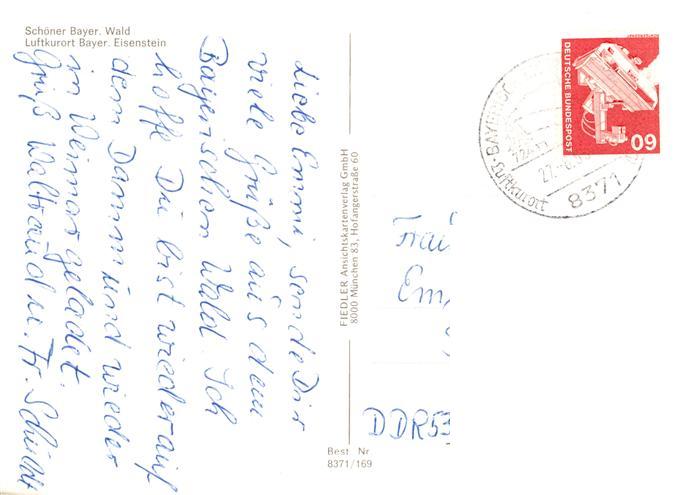 Schöner Bayer. Wald
Luftkurort Bayer. Eisenstein
Liebe Emmi, sende Dir
viele Grüße aus dem
Bayerischen Wald. Ich
hoffe Du bist wieder auf
dem Damm und wieder
in Weimar gelandet
Gruß Waltraud u. Fr. Schmidt
FIEDLER Ansichtskartenverlag GmbH
8000 München 83, Hofangerstraße 60
Best. Nr
8371/169
DEUTSCHE BUNDESPOST
60
Luftkurort
8371
Frau
Em
DDR 53